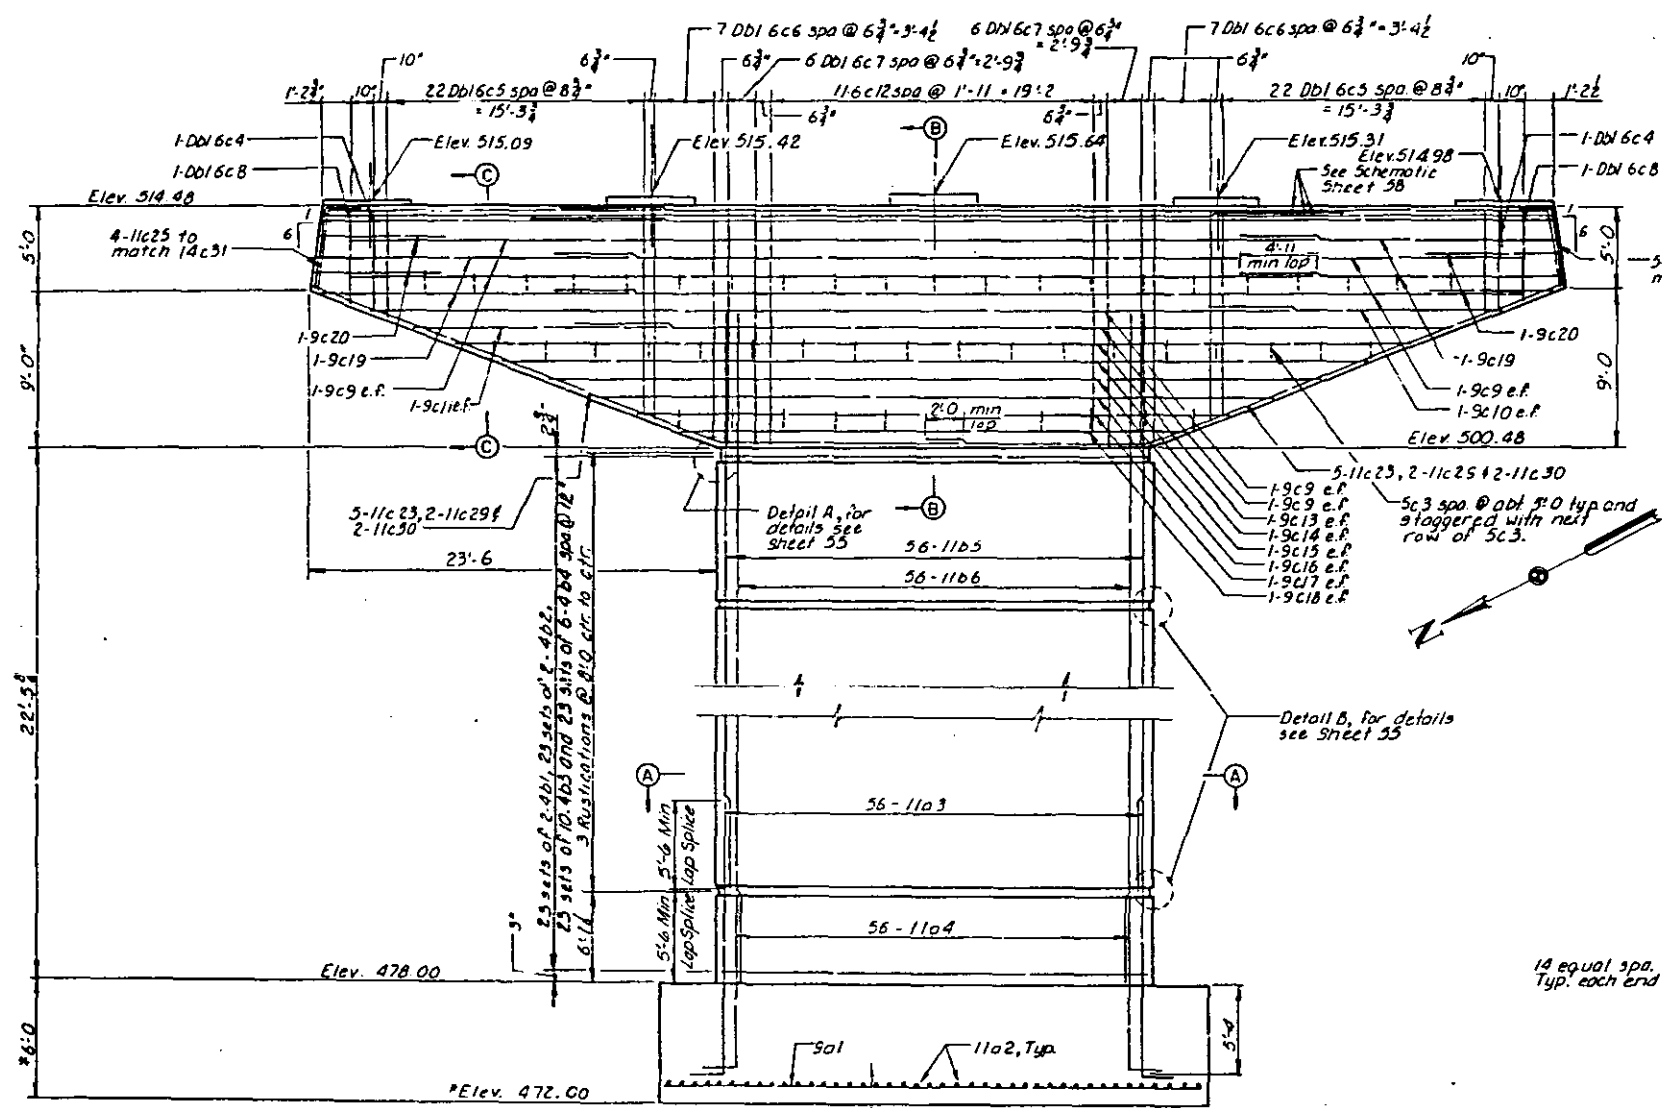 7 Dbl 6c6 spa @ 6¾" = 3'-4½
6 Dbl 6c7 spa @ 6¾" = 2'-9¾
7 Dbl 6c6 spa @ 6¾" = 3'-4½
10"
6¾"
6¾"
6 Dbl 6c7 spa @ 6¾" = 2'-9¾
6¾"
10"
10"
22 Dbl 6c5 spa @ 8¾" = 15'-3¾
11-6c12 spa @ 1'-11 = 19'-2
22 Dbl 6c5 spa @ 8¾" = 15'-3¾
10"
1'-2½
6¾"
6¾"
1-Dbl 6c4
Elev. 515.09
Elev. 515.42
B
Elev. 515.64
Elev. 515.31
Elev. 514.98
1-Dbl 6c4
1-Dbl 6c8
C
See Schematic
Sheet 58
1-Dbl 6c8
Elev. 514.48
1
6
1
6
5'-0
4-11c25 to
match 14c31
4'-11
min lap
5'-0
5
m
1-9c20
1-9c19
1-9c9 e.f.
1-9c11 e.f.
1-9c20
1-9c19
1-9c9 e.f.
1-9c10 e.f.
9'-0"
9'-0
2'-0 min
lap
C
Elev. 500.48
5-11c23, 2-11c29 &
2-11c30
Detail A, for
details see
sheet 55
B
5-11c23, 2-11c25 & 2-11c30
1-9c9 e.f.
1-9c9 e.f.
1-9c13 e.f.
1-9c14 e.f.
1-9c15 e.f.
1-9c16 e.f.
1-9c17 e.f.
1-9c18 e.f.
5c3 spa. @ abt 5'-0 typ and
staggered with next
row of 5c3.
23'-6
56-11b5
56-11b6
N
22'-5¾
23 sets of 2-4b1, 23 sets of 2-4b2,
23 sets of 10-4b3 and 23 sets of 6-4b4 spa. @ 12"
3 Rustications @ 8'-0 ctr. to ctr.
Detail B, for details
see Sheet 55
A
A
56-11a3
5'-6 Min
Lap Splice
5'-6 Min
Lap Splice
56-11a4
3"
Elev. 478.00
14 equal spa.
Typ. each end
*6'-0
9a1
11a2, Typ.
5'-4
*Elev. 472.00